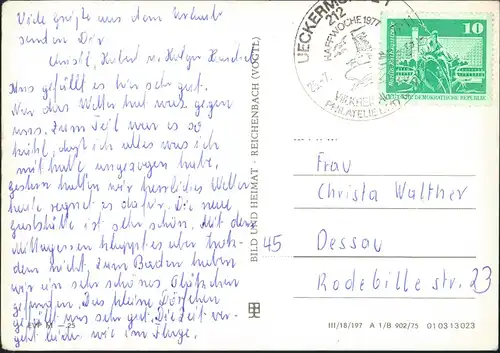 Viele Grüße aus dem Urlaub
senden Dir
Uns gefällt es hier sehr gut.
Nur das Wetter hat was gegen
uns. Zum Teil war es so
kühl, daß ich alles was ich
mit hatte angezogen habe.
gestern hatten wir herrliches Wetter
heute regnet es dafür. Die neue
gaststätte ist sehr schön. Mit dem
Mittagessen klappt es aber trotz-
dem nicht. Zum Baden haben
wir ein sehr schönes Plätzchen
gefunden. Das kleine Dörfchen
gefällt uns sehr gut. Die Zeit ver-
geht leider wie im Fluge.
EVP M –.25
BILD UND HEIMAT · REICHENBACH (VOGTL)
212
HAFFWOCHE 1977
PHILATELIE
10
DEUTSCHE DEMOKRATISCHE REPUBLIK
Frau
Christa Walther
45 Dessau
Radebille str. 23
III/18/197 A 1/B 902/75 01 03 13 023